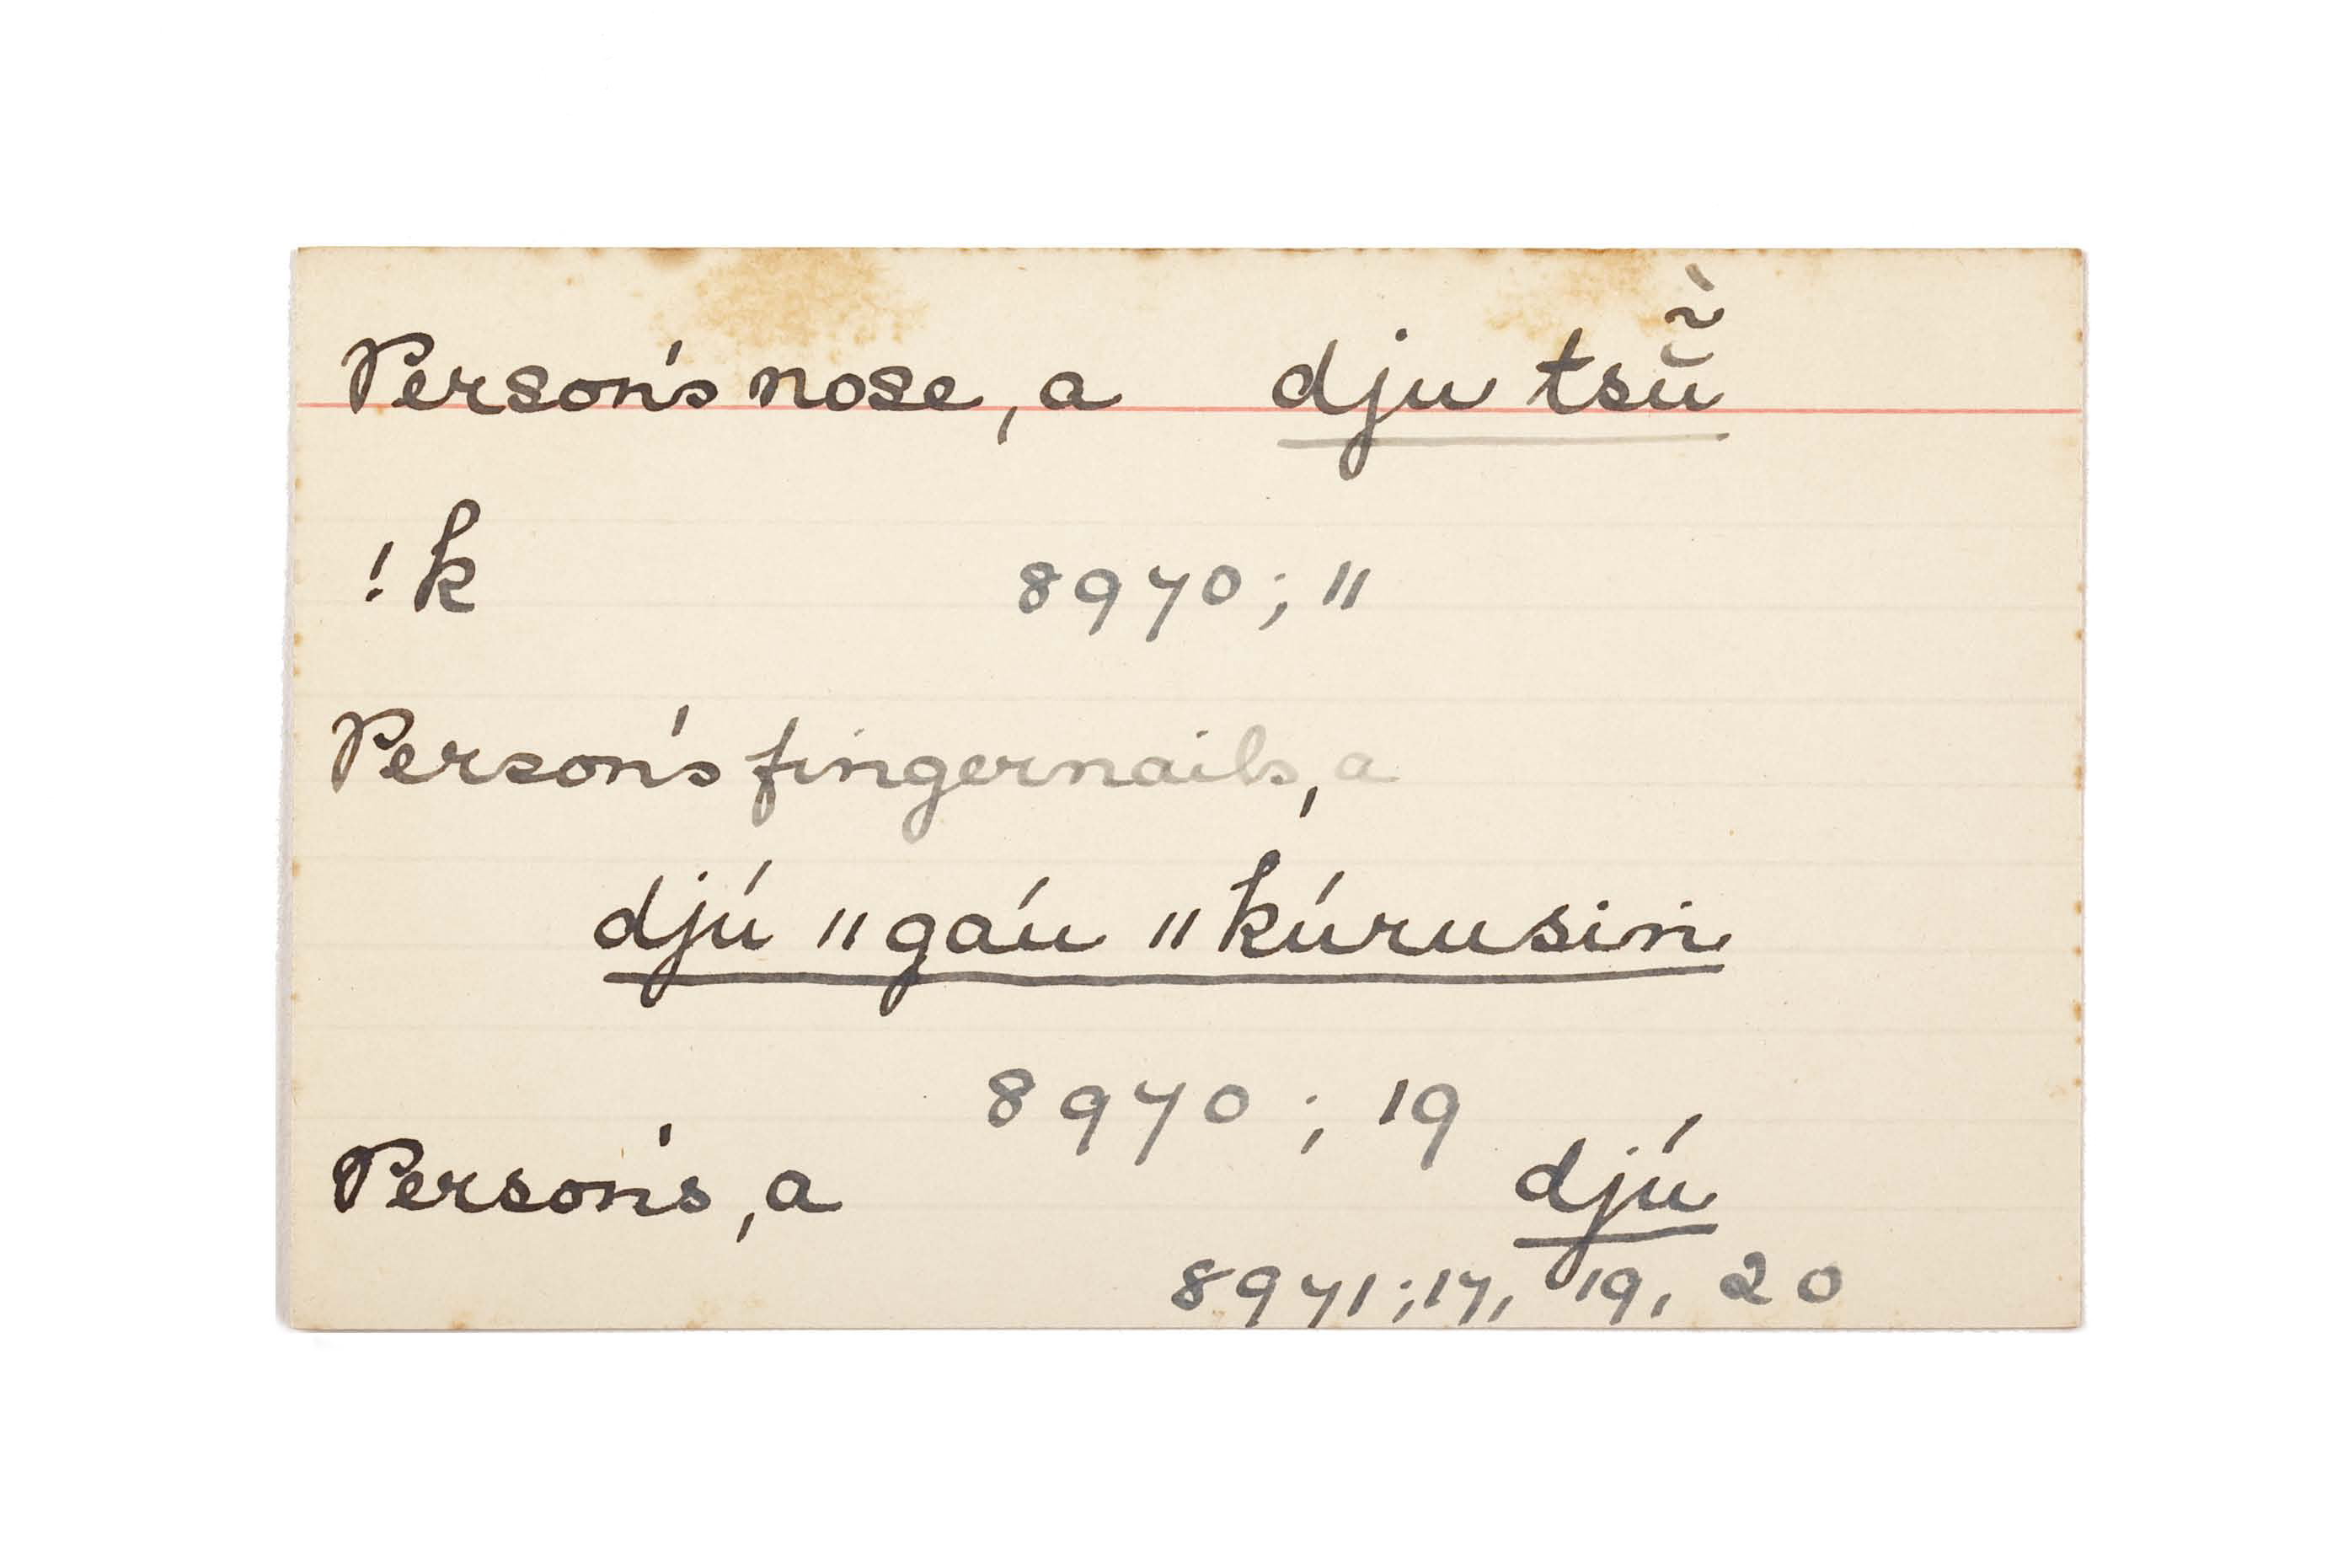 Person's nose, a dju tsṵ̄̃̀
!k 8970; 11
Person's fingernails, a
djú ǁgáu ǁkúrusin
8970; 19
Person's, a djú
8971; 17, 19, 20